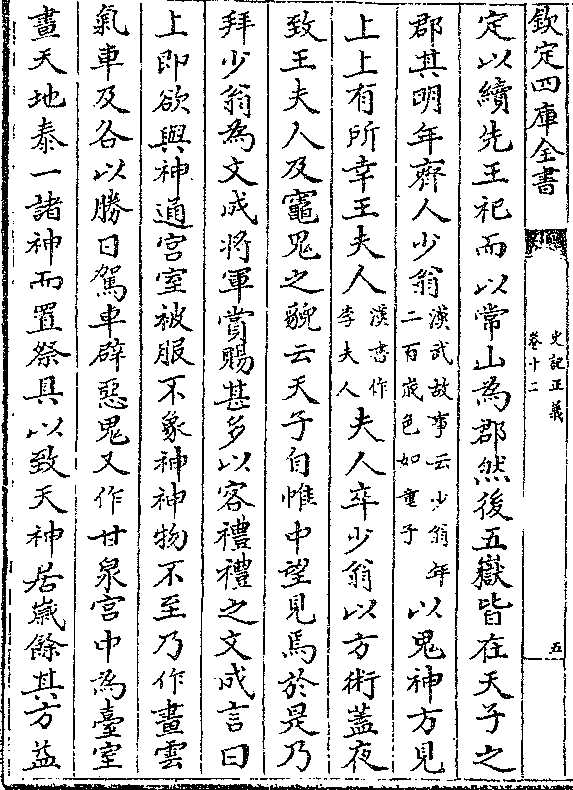 欽定四庫全書
史記正義
卷十二
五
定以續先王祀而以常山為郡然後五嶽皆在天子之
郡其明年齊人少翁漢武故事云少翁年二百歲色如童子以鬼神方見
上上有所幸王夫人漢書作李夫人夫人卒少翁以方術蓋夜
致王夫人及竈鬼之貌云天子自惟中望見焉於是乃
拜少翁為文成將軍賞賜甚多以客禮禮之文成言曰
上即欲與神通宮室被服不象神神物不至乃作畫雲
氣車及各以勝日駕車辟惡鬼又作甘泉宮中為臺室
畫天地泰一諸神而置祭具以致天神居嵗餘其方益